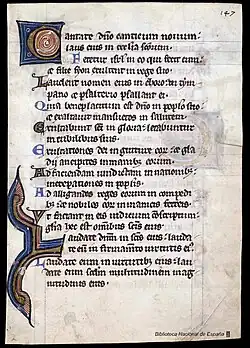 147
Cantate dño canticum novum
laus eius in ecclia sc̃orum.
Letetur isrl̃ in eo qui fecit eum
et filie syon exultent in rege suo.
Laudent nomen eius in choro in tym
pano et psalterio psallant ei.
Quia beneplacitum est dño in poplo suo
et exaltavit mansuetos in salutem.
Exultabunt sc̃i in gloria letabuntur
in cubilibus suis.
Exultationes dei in gutture eor et gla
dii ancipites in manibus eorum.
Ad faciendam vindictam in nationibus
increpationes in poplis.
Ad alligandos reges eorum in compedib
et nobiles eor in manicis ferreis.
Ut faciant in eis iudicium c̃scriptum
glia hec est omnibus sc̃is eius.
Laudate dñm in sc̃is eius lauda
te eũ in firmamẽto virtutis ei
Laudate eum in virtutibꝫ eius lau
date eum scdm̃ multitudinem mag
nitudinis eius.
Biblioteca Nacional de España